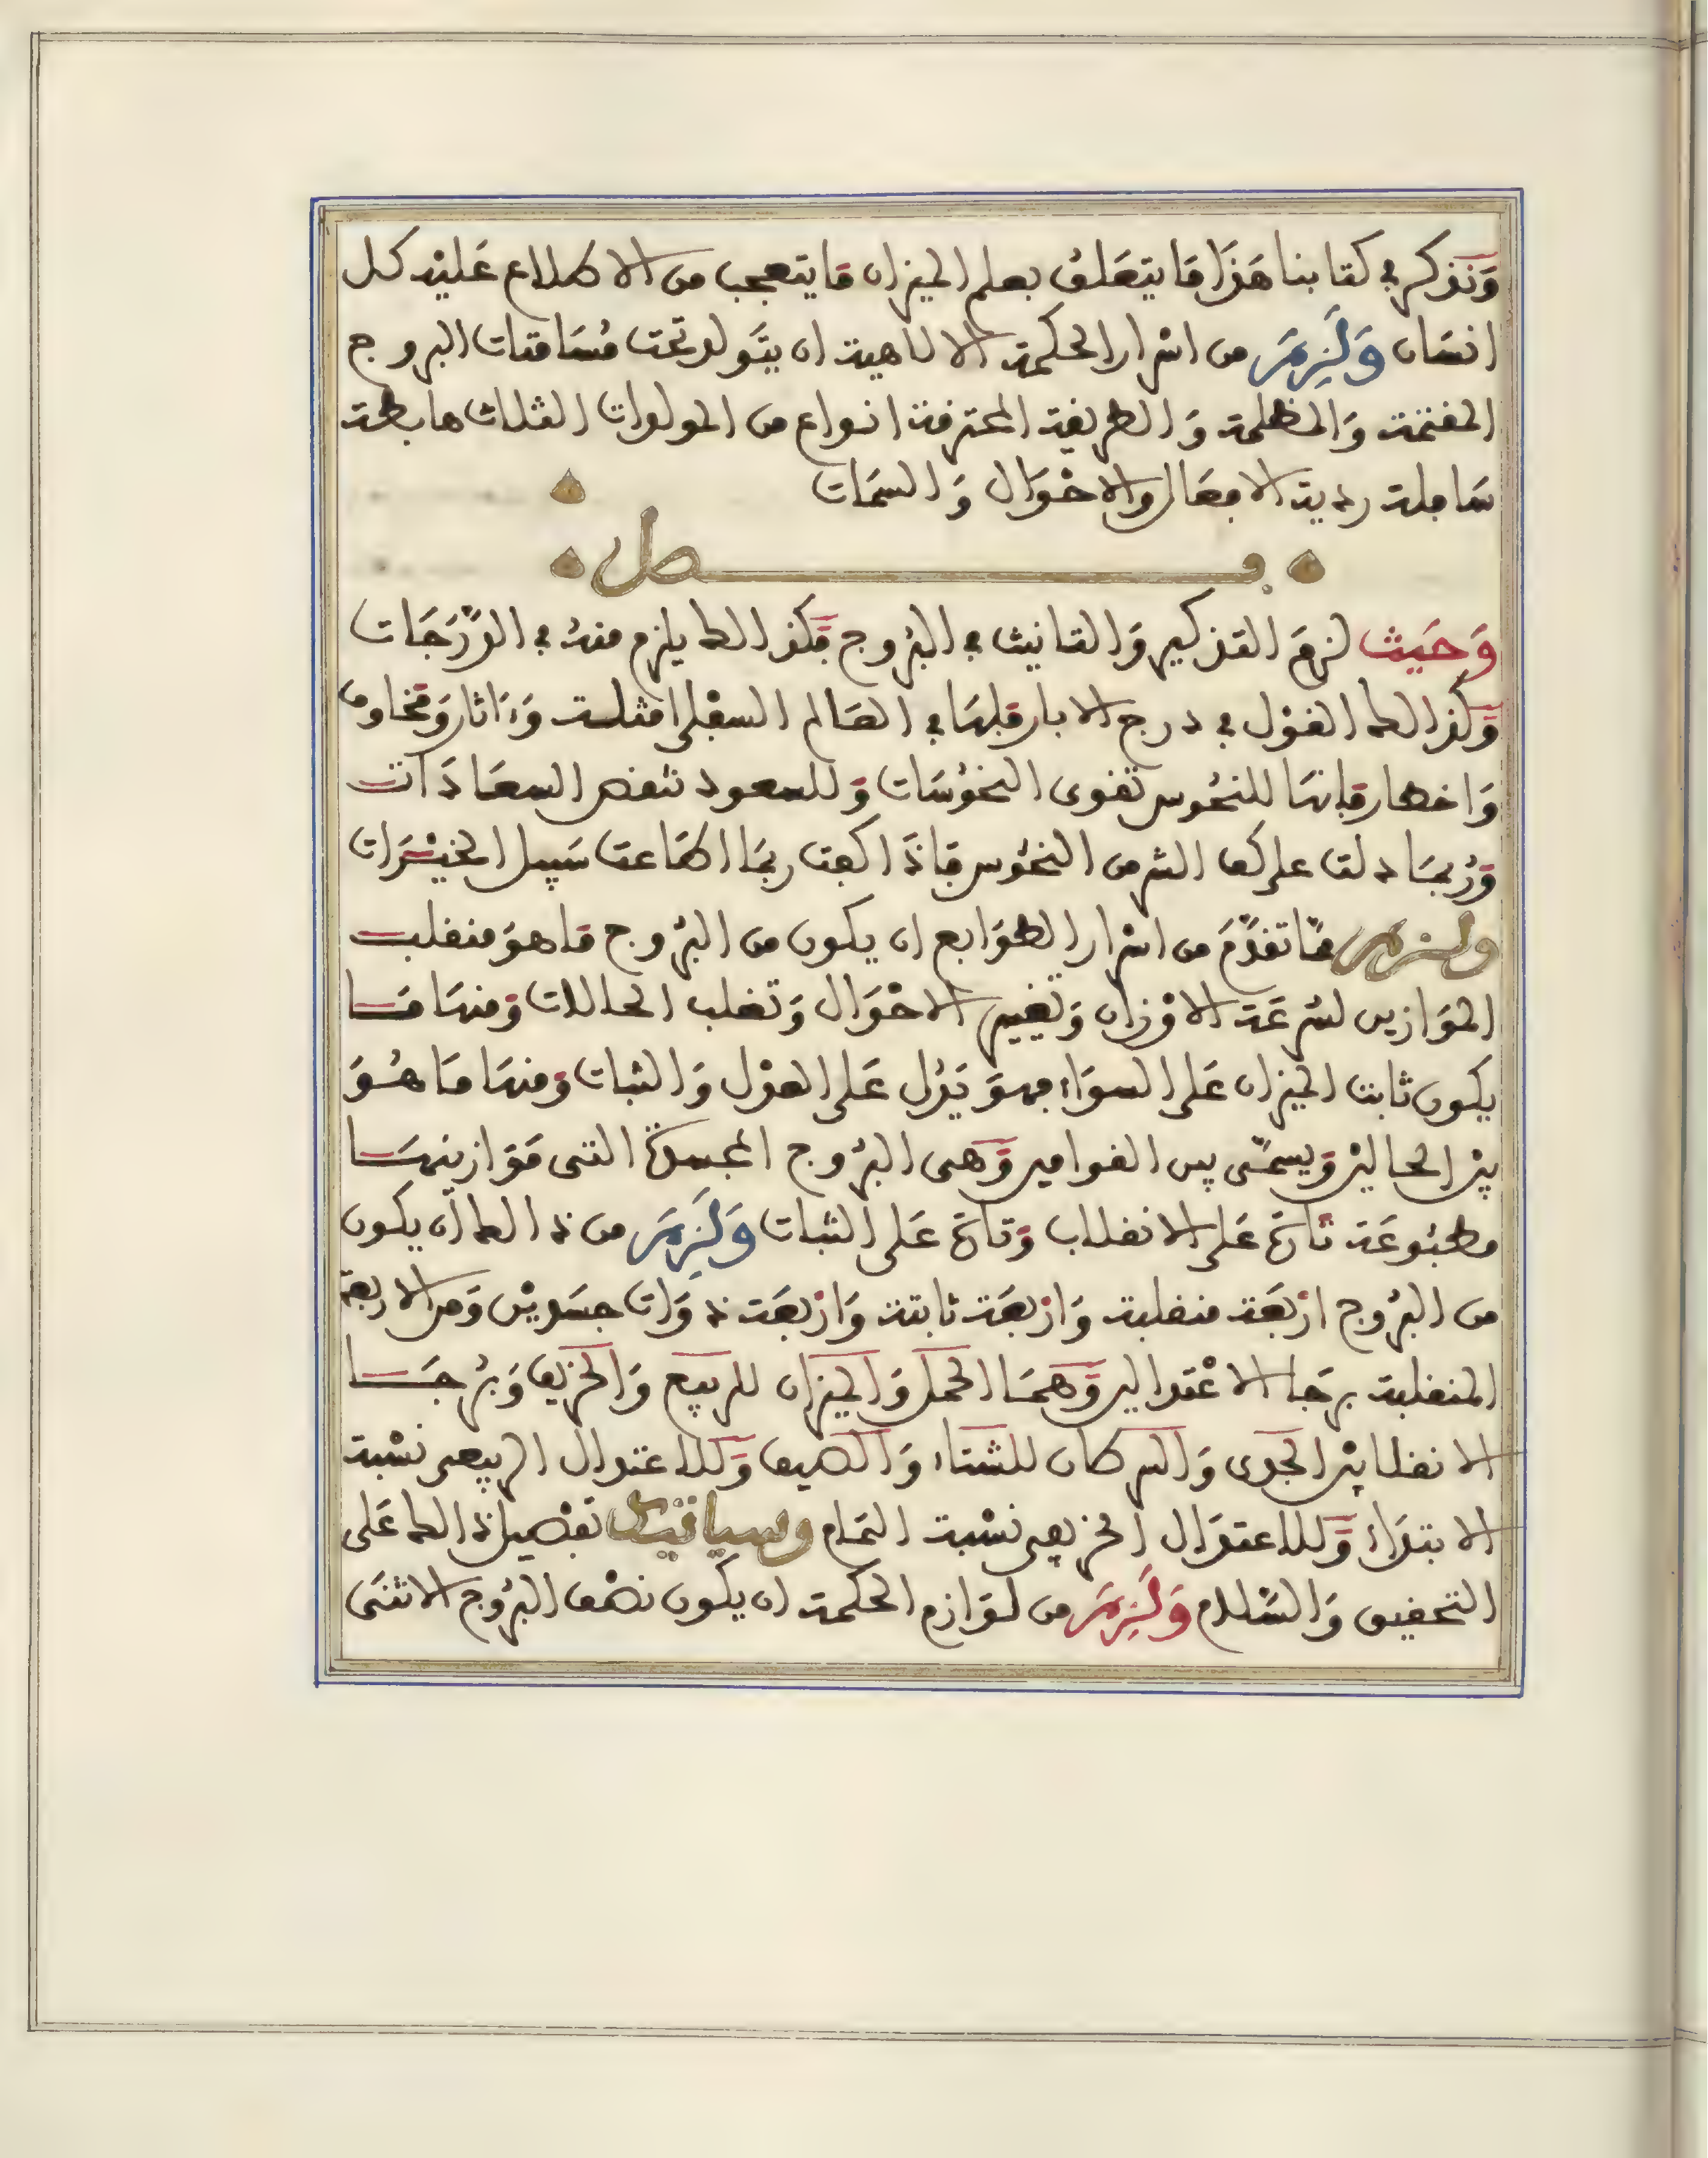 وَنَذكر في كتابنا هَذَا مَا يتعَلق بعلم الميزان مَا يتعجب من الاطلاع عَليْه كل
انسَان وَلَزِمَ من اسْرار الحكمة الالاهية ان يتَولد تحت مُسَامتات البروج
المغتمة وَالمظلمة وَالطريقة المحترقة انواع من المولدات الثلاث هابطة
سَافلة ردية الافعَال والاحْوَال وَالسمَات
فصل
وَحَيث لزمَ التذكير وَالتانيث في البُروج فكذالك يلزم منهُ في الدَّرَجَات
وَكذالك القوْل في درج الابار فلهَا في العَالم السفْلي امثلة وَءَاثار وَمخاوف
وَاخطار فانهَا للنحُوس تقوى النحُوسَات وَللسعود تنقص السعَادَات
وَرُبمَا دلت على كف الشر من النحُوس فاذَا كفت ربمَا اطَاعت سَبيل الخيْرَات
ولزم ممَّا تقدَّمَ من اسْرار الطوَابع ان يكون من البرُوج مَا هوَ منقلب
الموَازين لسُرعَة الاوْزان وَتغيير الاحْوَال وَتقلب الحالات وَمنهَا مَا
يكون ثابت الميزان عَلى السوَاء فهوَ يَدُل عَلى العدْل وَالثبات وَمنهَا مَا هُوَ
بيْن الحاليْن وَيسمَّى بين القوامين وَهى البرُوج المجسدة التى مَوَازينهَا
مطبُوعَة تارَة عَلى الانقلاب وَتارَة عَلى الثبات وَلَزِمَ من ذالك أن يكون
من البرُوج ارْبعَة منقلبة وَارْبعَة ثابتة وَارْبعَة ذوَات جسَديْن وَمن الاربعة
المنقلبة برجَا الاعْتدالين وَهمَا الحمَل وَالميزان للربيع وَالخريف وَبرُجَا
الانقلابيْن الجَدى وَالسرطان للشتاء وَالصيف وَللاعتدال الربيعى نسْبة
الابتدَاء وَللاعتدَال الخريفى نسْبة التمَام وسياتيك تفصيل ذالك عَلى
التحقيق وَالسَّلام وَلَزِمَ من لوَازم الحكمة ان يكون نصْف البرُوج الاثنَى